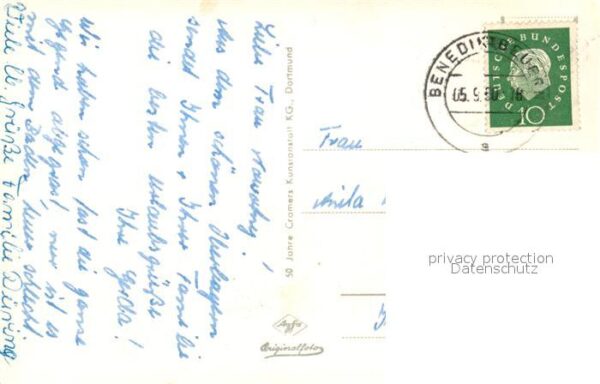 Liebe Frau
Aus dem schönen
sendet Ihnen & Ihrer Familie
die besten Urlaubsgrüße
Ihre Gerda!
Wir haben schon fast die ganze
Gegend abgegrast, nur ist es
mit dem Baden schlecht
Viele U. Grüße Familie Düring
50 Jahre Cramers Kunstanstalt KG., Dortmund
Agfa
Originalfoto
BENEDIKTBEUERN
05.9.60.-18
a
DEUTSCHE BUNDESPOST
10
Frau
Anita
privacy protection
Datenschutz